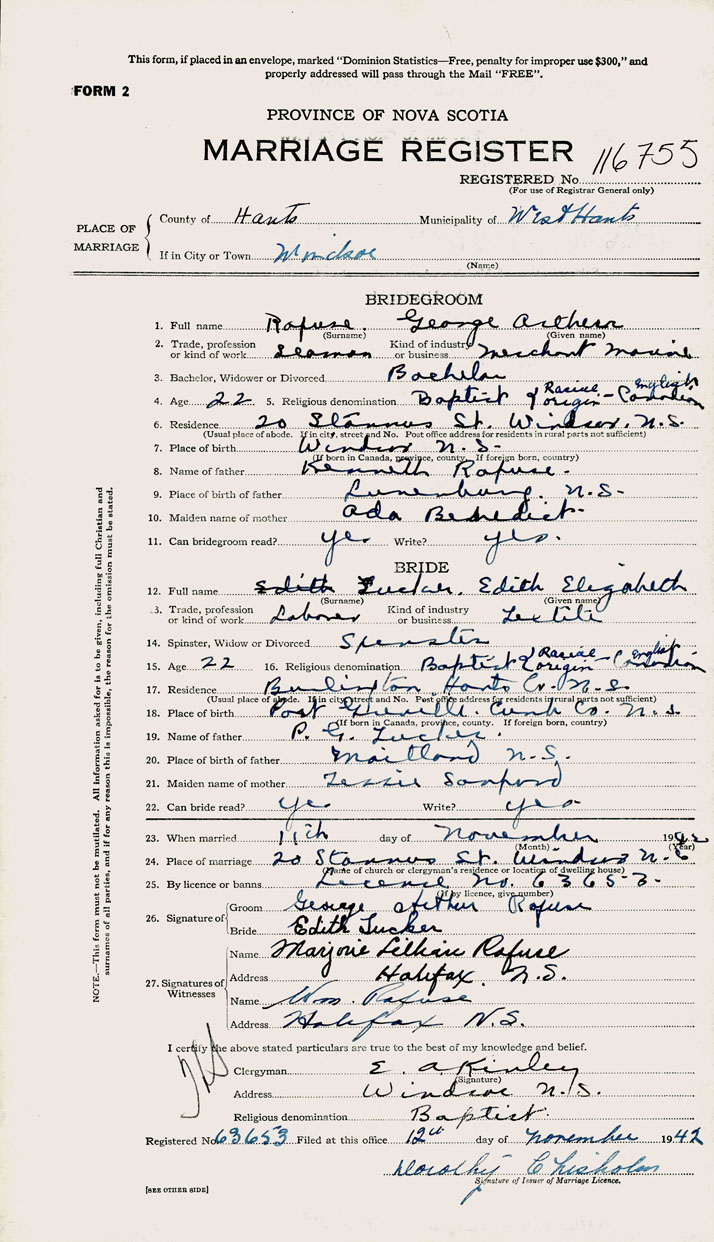 This form, if placed in an envelope, marked "Dominion Statistics—Free, penalty for improper use $300," and
properly addressed will pass through the Mail "FREE".
FORM 2
PROVINCE OF NOVA SCOTIA
MARRIAGE REGISTER
REGISTERED No. 116755
(For use of Registrar General only)
PLACE OF MARRIAGE
County of Hants Municipality of West Hants
If in City or Town Windsor
(Name)
BRIDEGROOM
1. Full name Rafuse. George Arthur
(Surname) (Given name)
2. Trade, profession or kind of work Seaman Kind of industry or business Merchant Marine
3. Bachelor, Widower or Divorced Bachelor
4. Age 22 5. Religious denomination Baptist Racial origin - English Canadian
6. Residence 20 Stannus St. Windsor, N.S.
(Usual place of abode. If in city, street and No. Post office address for residents in rural parts not sufficient)
7. Place of birth Windsor N.S.
(If born in Canada, province, county. If foreign born, country)
8. Name of father Kenneth Rafuse.
9. Place of birth of father Lunenburg, N.S.
10. Maiden name of mother Ada Benedict
11. Can bridegroom read? yes Write? yes.
BRIDE
12. Full name Edith Tucker, Edith Elizabeth
(Surname) (Given name)
13. Trade, profession or kind of work Laborer Kind of industry or business Textile
14. Spinster, Widow or Divorced Spinster
15. Age 22 16. Religious denomination Baptist Racial origin - English Canadian
17. Residence Burlington Hants Co. N.S.
(Usual place of abode. If in city street and No. Post office address for residents in rural parts not sufficient)
18. Place of birth Port Greville Cumb Co. N.S.
(If born in Canada, province, county. If foreign born, country)
19. Name of father P. G. Tucker.
20. Place of birth of father Maitland N.S.
21. Maiden name of mother Tessie Sanford
22. Can bride read? yes Write? yes
23. When married 11th day of November 1942
(Month) (Year)
24. Place of marriage 20 Stannus St. Windsor N.S.
(Name of church or clergyman's residence or location of dwelling house)
25. By licence or banns License No. 63653
(If by licence, give number)
26. Signature of
Groom George Arthur Rafuse
Bride Edith Tucker
27. Signatures of Witnesses
Name Marjorie Lillian Rafuse
Address Halifax, N.S.
Name Wm. Rafuse
Address Halifax N.S.
I certify the above stated particulars are true to the best of my knowledge and belief.
Clergyman E. A Kinley
(Signature)
Address Windsor N.S.
Religious denomination Baptist.
Registered No. 63653 Filed at this office 12th day of November 1942
Dorothy Chisholm
Signature of Issuer of Marriage Licence.
[SEE OTHER SIDE]
NOTE.—This form must not be mutilated. All information asked for is to be given, including full Christian and
surnames of all parties, and if for any reason this is impossible, the reason for the omission must be stated.